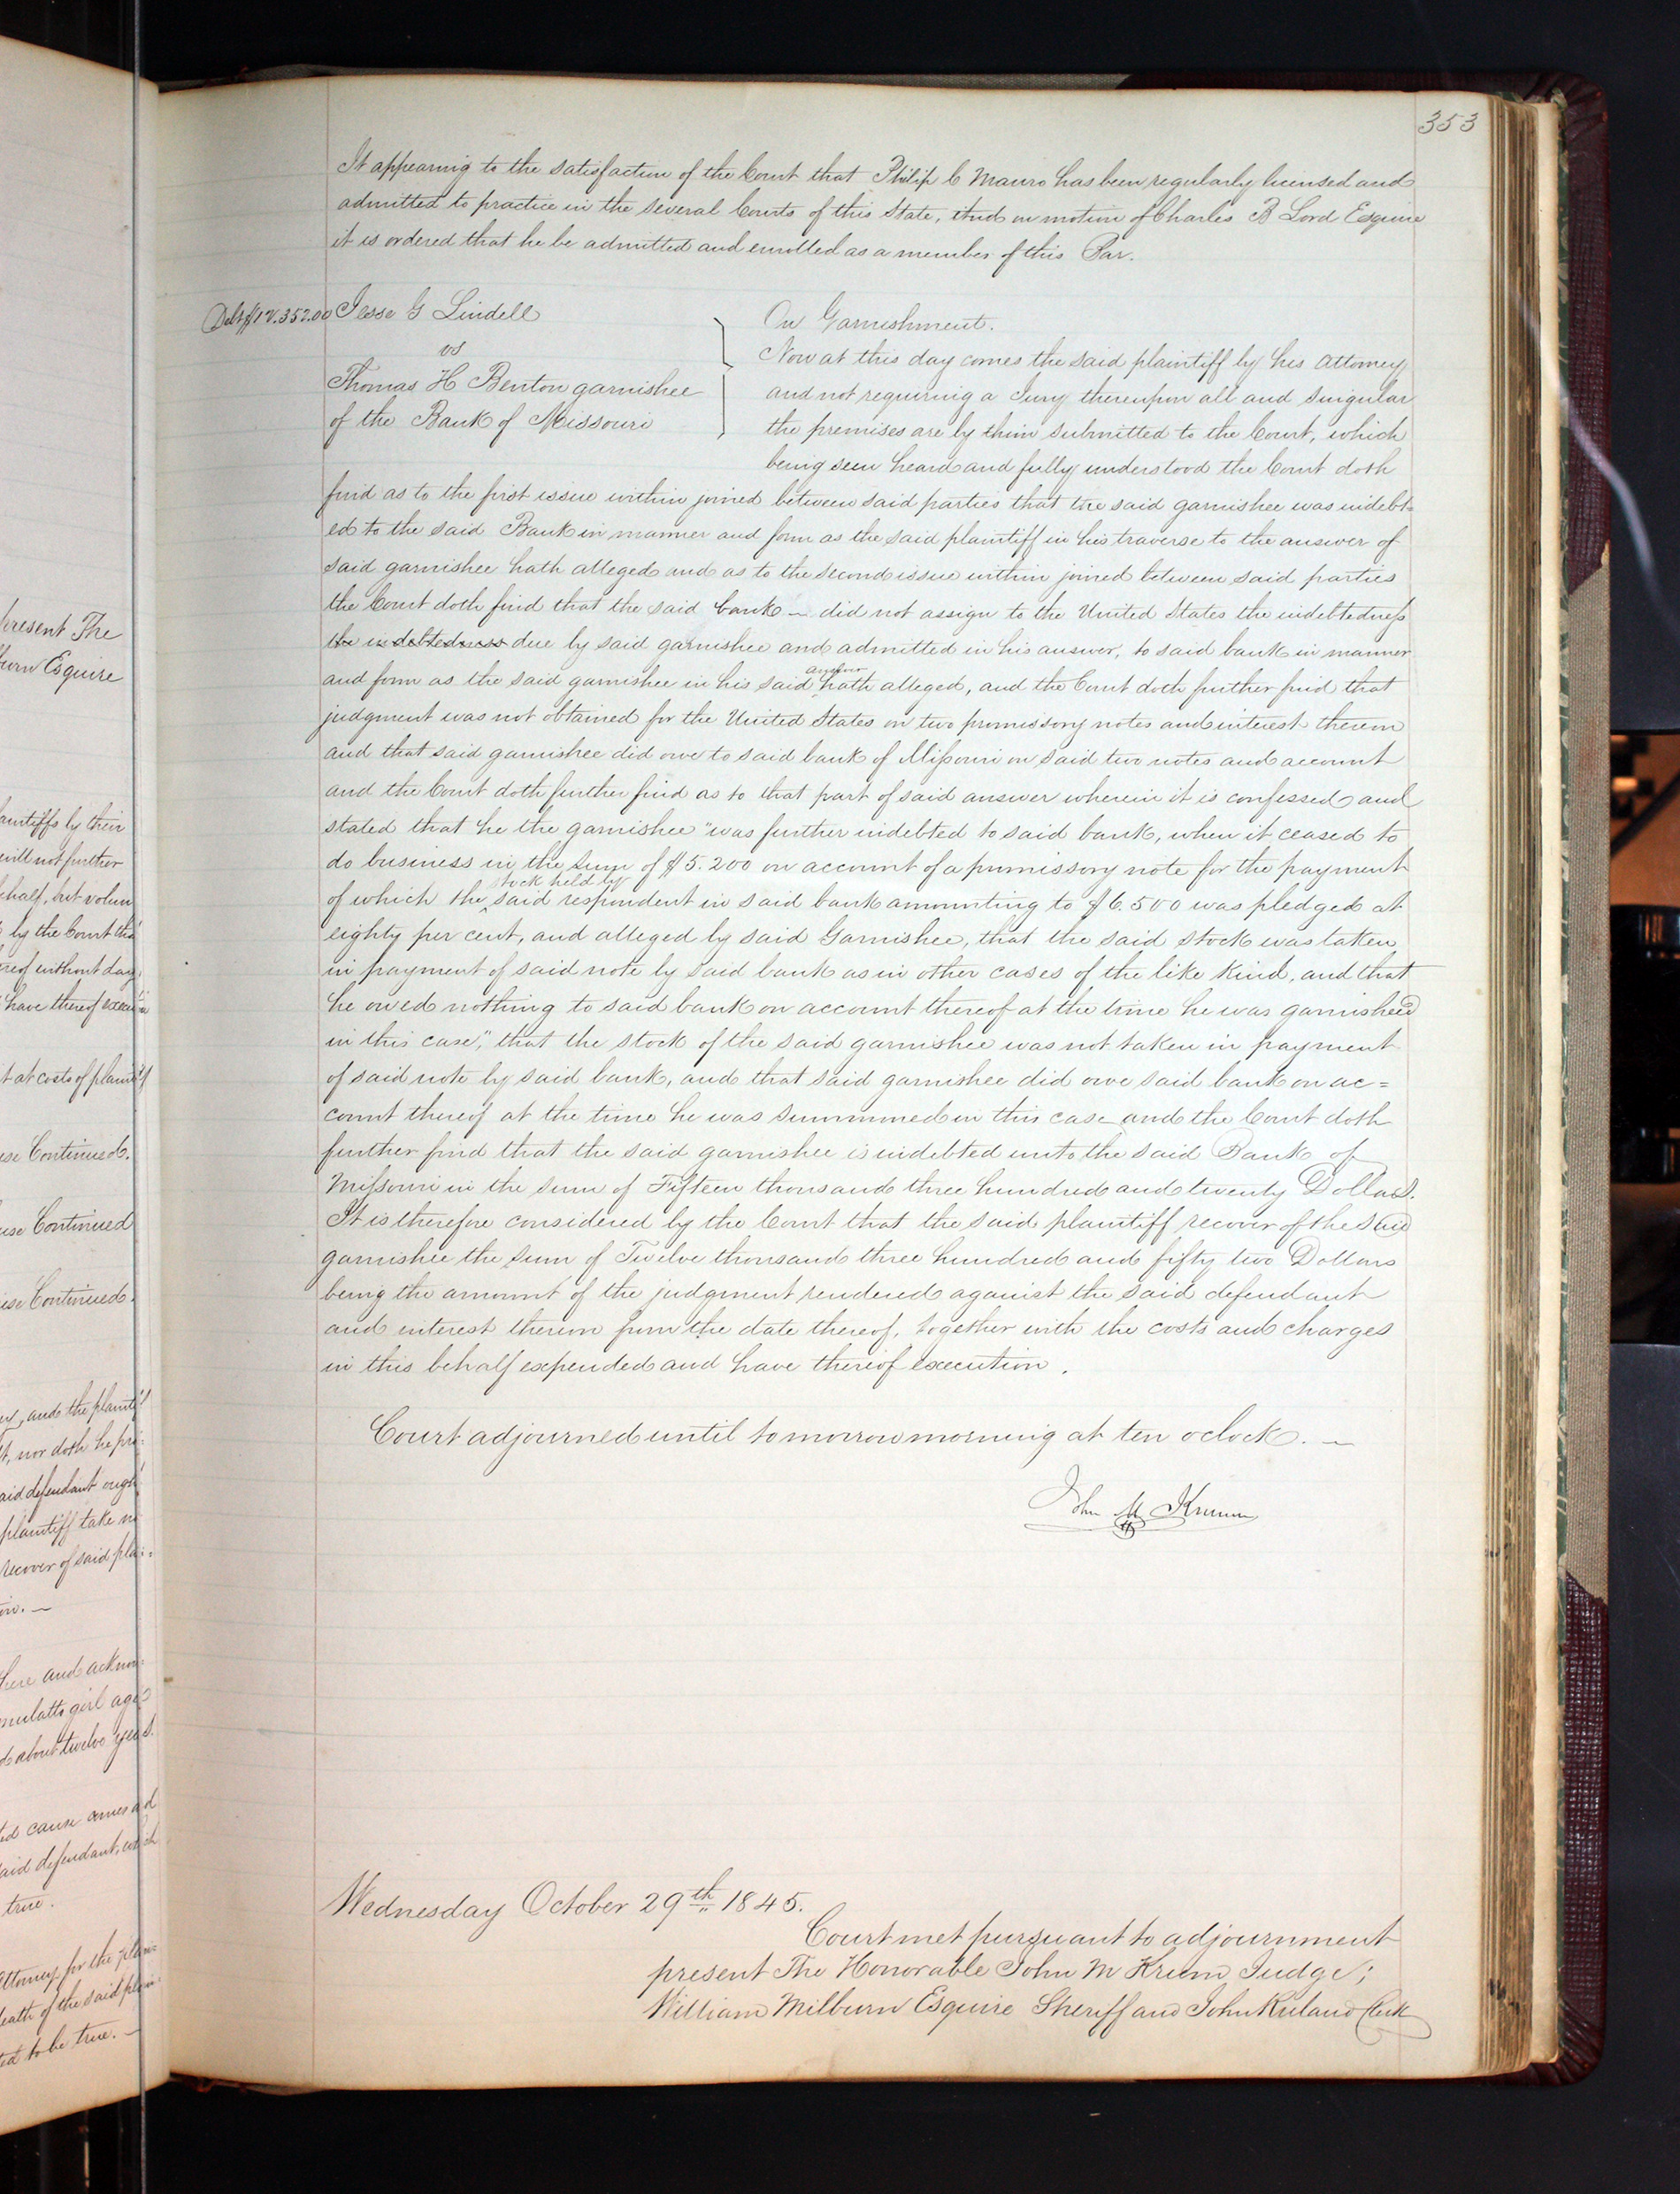 353
It appearing to the satisfaction of the Court that Philip C Mauro has been regularly licensed and
admitted to practice in the several Courts of this State, And on motion of Charles B Lord Esquire
it is ordered that he be admitted and enrolled as a member of this Bar.
Debt $12.352.00
Jesse G Lindell
vs
Thomas H Benton garnishee
of the Bank of Missouri
On Garnishment.
Now at this day comes the said plaintiff by his Attorney
and not requiring a Jury thereupon all and singular
the premises are by them submitted to the Court, which
being seen heard and fully understood the Court doth
find as to the first issue within joined between said parties that the said garnishee was indebt=
ed to the said Bank in manner and form as the said plaintiff in his traverse to the answer of
said garnishee hath alleged and as to the second issue within joined between said parties
the Court doth find that the said bank — did not assign to the United States the indebtedness
the indebtedness due by said garnishee and admitted in his answer, to said bank in manner
and form as the said garnishee in his said answer hath alleged, and the Court doth further find that
judgment was not obtained for the United States on two promissory notes and interest thereon
and that said garnishee did owe to said bank of Missouri on said two notes and account
and the Court doth further find as to that part of said answer wherein it is confessed and
stated that he the garnishee "was further indebted to said bank, when it ceased to
do business in the sum of $5.200 on account of a promissory note for the payment
of which the stock held by said respondent in said bank amounting to $6.500 was pledged at
eighty per cent, and alleged by said Garnishee, that the said stock was taken
in payment of said note by said bank as in other cases of the like kind, and that
he owed nothing to said bank on account thereof at the time he was garnisheed
in this case," that the stock of the said garnishee was not taken in payment
of said note by said bank, and that said garnishee did owe said bank on ac=
count thereof at the time he was summoned in this case and the Court doth
further find that the said garnishee is indebted unto the said Bank of
Missouri in the sum of Fifteen thousand three hundred and twenty Dollars.
It is therefore considered by the Court that the said plaintiff recover of the said
garnishee the sum of Twelve thousand three hundred and fifty two Dollars
being the amount of the judgment rendered against the said defendant
and interest thereon from the date thereof, together with the costs and charges
in this behalf expended and have thereof execution.
Court adjourned until tomorrow morning at ten oclock. —
John M Krum
Wednesday October 29th 1845.
Court met pursuant to adjournment
present The Honorable John M Krum Judge;
William Milburn Esquire Sheriff and John Ruland Clerk
present The
burn Esquire
plaintiffs by their
will not further
behalf, but volun
by the Court tha
reof without day
have thereof execu
t at costs of plaintiff
se Continued.
use Continued
use Continued.
and the plaintiff
t, nor doth he
aid defendant ough
plaintiff take
recover of said pla
here and ackno
mulatto girl aged
about twelve years
ed cause comes and
aid defendant, which
true.
Attorney for the plain
eath of the said plain
ed to be true. —